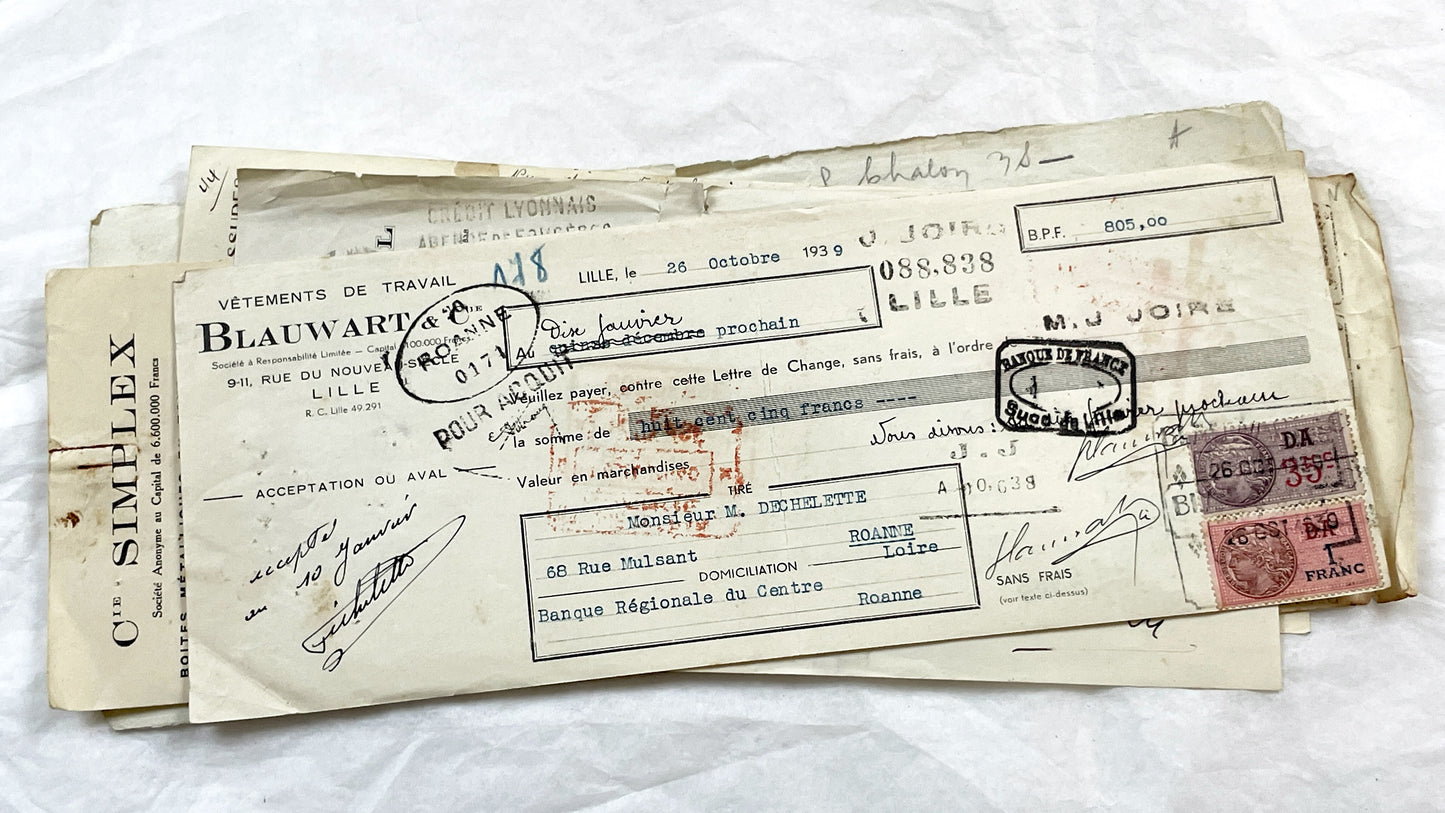 44
P Chalon
A
CRÉDIT LYONNAIS
Cie SIMPLEX
Société Anonyme au Capital de 6.600.000 Francs
BOITES
VÊTEMENTS DE TRAVAIL
BLAUWART & Cie
Société à Responsabilité Limitée — Capital 100.000 Francs
9-11, RUE DU NOUVEAU-SIÈCLE
LILLE
R. C. Lille 49.291
178
ROANNE
0171
POUR ACQUIT
LILLE, le 26 Octobre 1939
J. JOIRE
088.838
LILLE
B.P.F. 805,00
M.J JOIRE
Au quinze décembre prochain
Dix Janvier
Veuillez payer, contre cette Lettre de Change, sans frais, à l'ordre
la somme de huit cent cinq francs ----
BANQUE DE FRANCE
Succ de Lille
Valeur en marchandises
Nous disons :
Janvier prochain
J.J
ACCEPTATION OU AVAL
accepté
au 10 Janvier
Déchelette
TIRÉ
Monsieur M. DECHELETTE
68 Rue Mulsant
ROANNE
Loire
DOMICILIATION
Banque Régionale du Centre
Roanne
SANS FRAIS
(voir texte ci-dessus)
DA
26 OCT
DA
1 FRANC